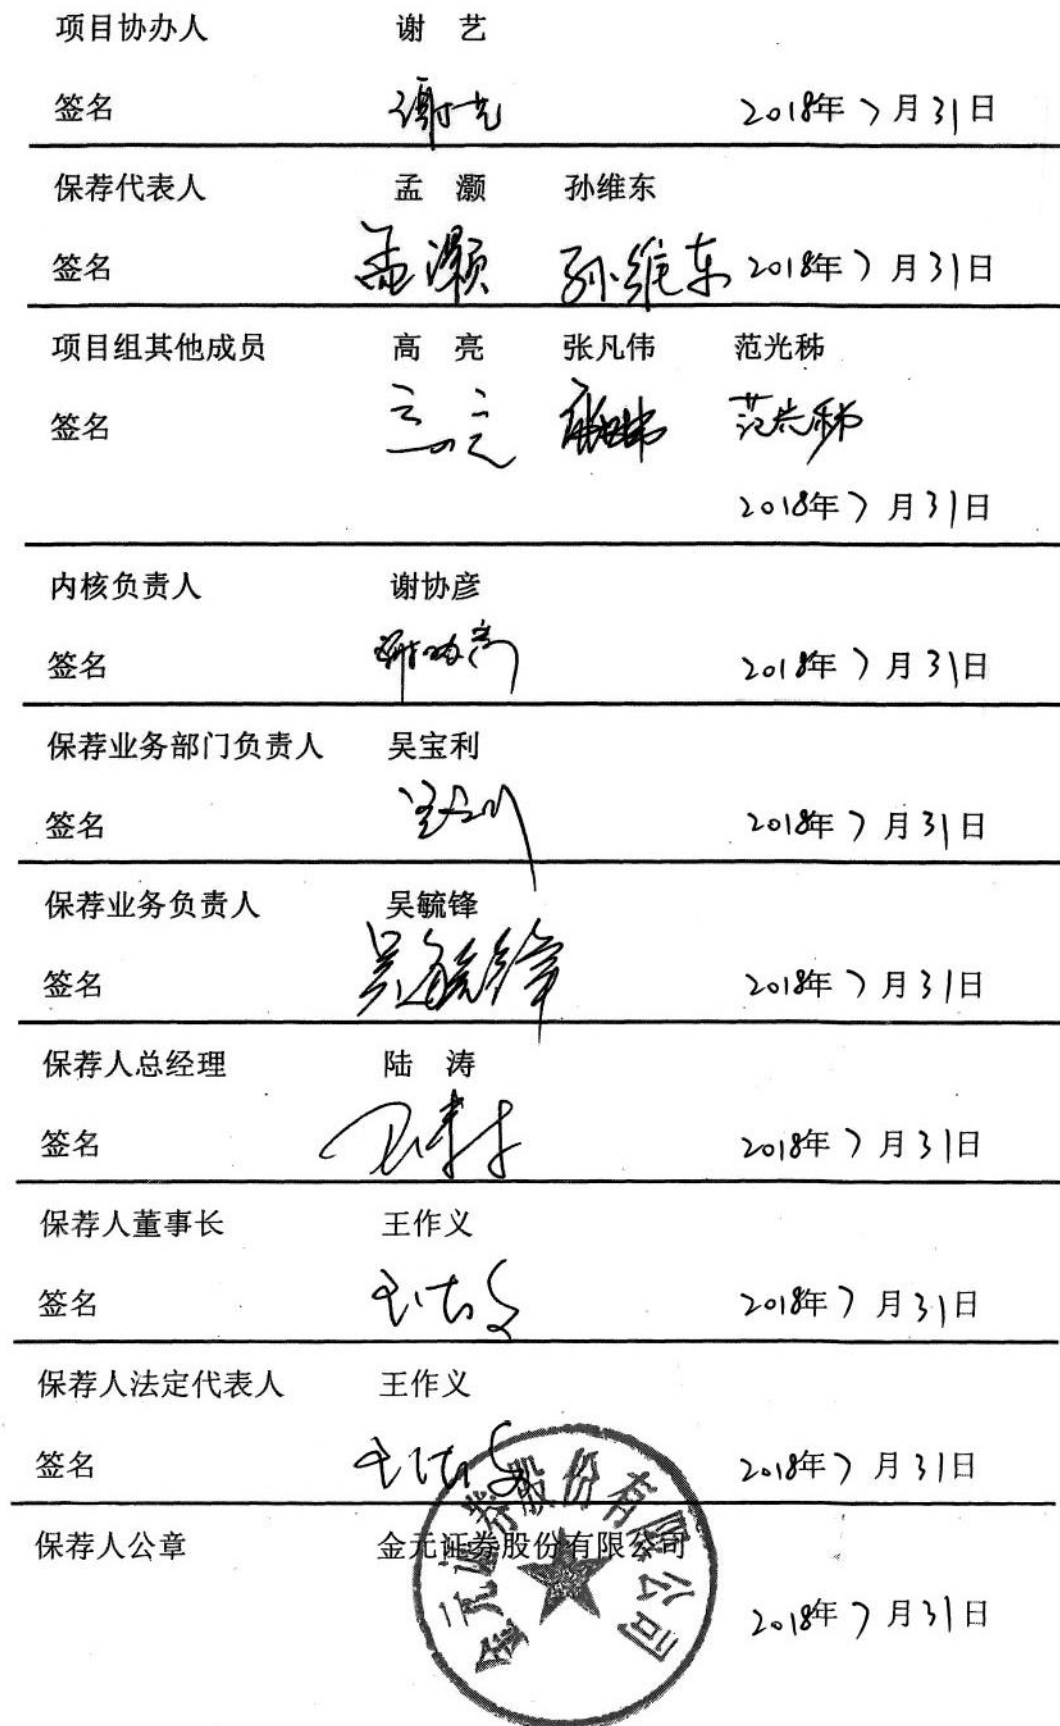 项目协办人 谢 艺
签名 谢艺 2018年7月31日
保荐代表人 孟 灏 孙维东
签名 孟灏 孙维东 2018年7月31日
项目组其他成员 高 亮 张凡伟 范光秭
签名 高亮 范光秭
2018年7月31日
内核负责人 谢协彦
签名 谢协彦 2018年7月31日
保荐业务部门负责人 吴宝利
签名 2018年7月31日
保荐业务负责人 吴毓锋
签名 吴毓锋 2018年7月31日
保荐人总经理 陆 涛
签名 2018年7月31日
保荐人董事长 王作义
签名 王作义 2018年7月31日
保荐人法定代表人 王作义
签名 王作义 2018年7月31日
保荐人公章 金元证券股份有限公司
金元证券股份有限公司
2018年7月31日